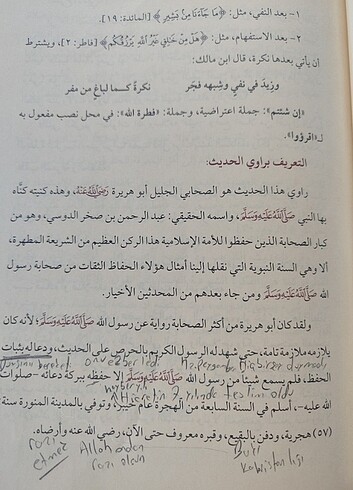 ١- بعد النفي، مثل: ﴿مَا جَآءَنَا مِنۢ بَشِيرٖ﴾ [المائدة: ١٩].
٢- بعد الاستفهام، مثل: ﴿هَلۡ مِنۡ خَٰلِقٍ غَيۡرُ ٱللَّهِ يَرۡزُقُكُم﴾ [فاطر: ٣]، ويشترط
أن يأتي بعدها نكرة، قال ابن مالك:
وزيدَ في نفيٍ وشِبهه فجَر نكرةً كـما لباغٍ من مفر
«إن شئتم»: جملة اعتراضية، وجملة: «فطرة الله»: في محل نصب مفعول به
لـ«اقرؤوا».
التعريف براوي الحديث:
راوي هذا الحديث هو الصحابي الجليل أبو هريرة رَضِيَ اللَّهُ عَنْهُ، وهذه كنيته كنَّاه
بها النبي صَلَّى اللَّهُ عَلَيْهِ وَسَلَّمَ، واسمه الحقيقي: عبد الرحمن بن صخر الدوسي، وهو من
كبار الصحابة الذين حفظوا للأمة الإسلامية هذا الركن العظيم من الشريعة المطهرة،
ألا وهي السنة النبوية التي نقلها إلينا أمثال هؤلاء الحفاظ الثقات من صحابة رسول
الله صَلَّى اللَّهُ عَلَيْهِ وَسَلَّمَ ومن جاء بعدهم من المحدثين الأخيار.
ولقد كان أبو هريرة من أكثر الصحابة رواية عن رسول الله صَلَّى اللَّهُ عَلَيْهِ وَسَلَّمَ؛ لأنه كان
يلازمه ملازمة تامة، حتى شهد له الرسول الكريم بالحرص على الحديث، ودعا له بثبات
الحفظ، فلم يسمع شيئا من رسول الله صَلَّى اللَّهُ عَلَيْهِ وَسَلَّمَ إلا حفظه ببركة دعائه -صلوات
الله عليه-، أسلم في السنة السابعة من الهجرة عام خيبر، وتوفي بالمدينة المنورة سنة
(٥٧) هجرية، ودفن بالبقيع، وقبره معروف حتى الآن، رضي الله عنه وأرضاه.
razı etmez Allah ondan razı olsun
Kabristanlığı